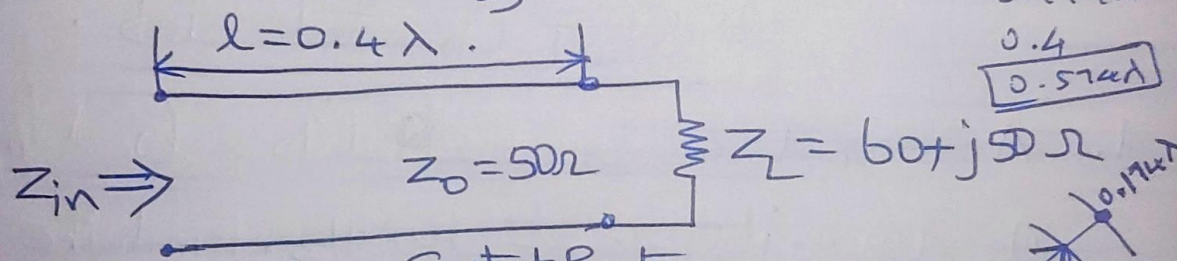 l=0.4λ.
0.4
0.574λ
Zin⇒
Z0=50Ω
ZL=60+j50Ω
0.174λ